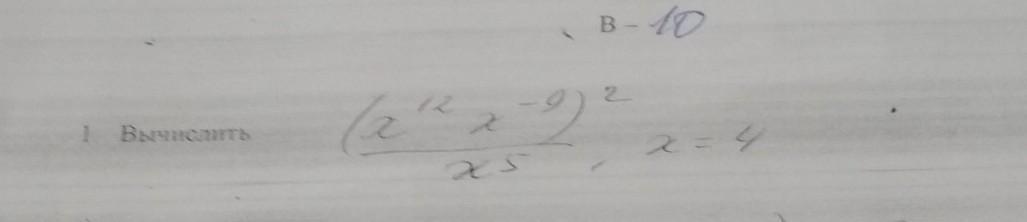 В – 10
1 Вычислить (x^12 x^-9)^2 / x^5, x = 4